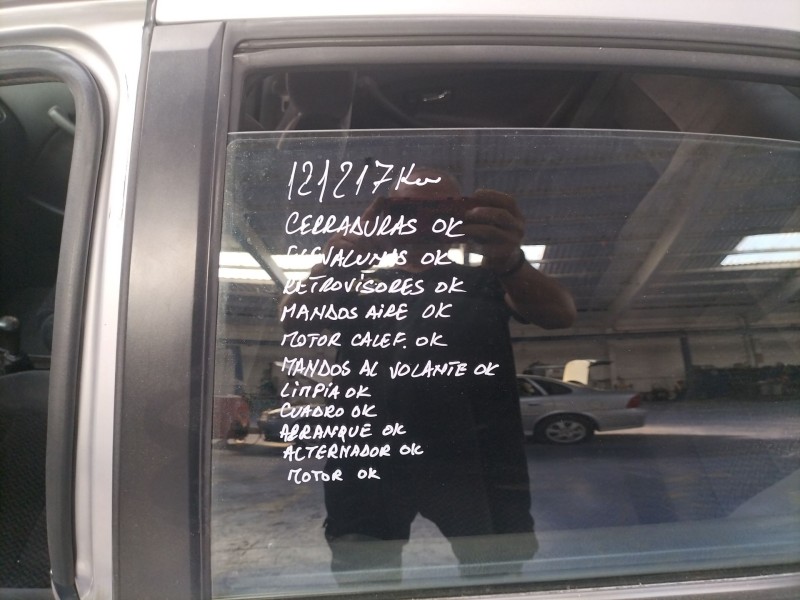 121217 Km
CERRADURAS OK
ELEVALUNAS OK
RETROVISORES OK
MANDOS AIRE OK
MOTOR CALEF. OK
MANDOS AL VOLANTE OK
LIMPIA OK
CUADRO OK
ARRANQUE OK
ALTERNADOR OK
MOTOR OK